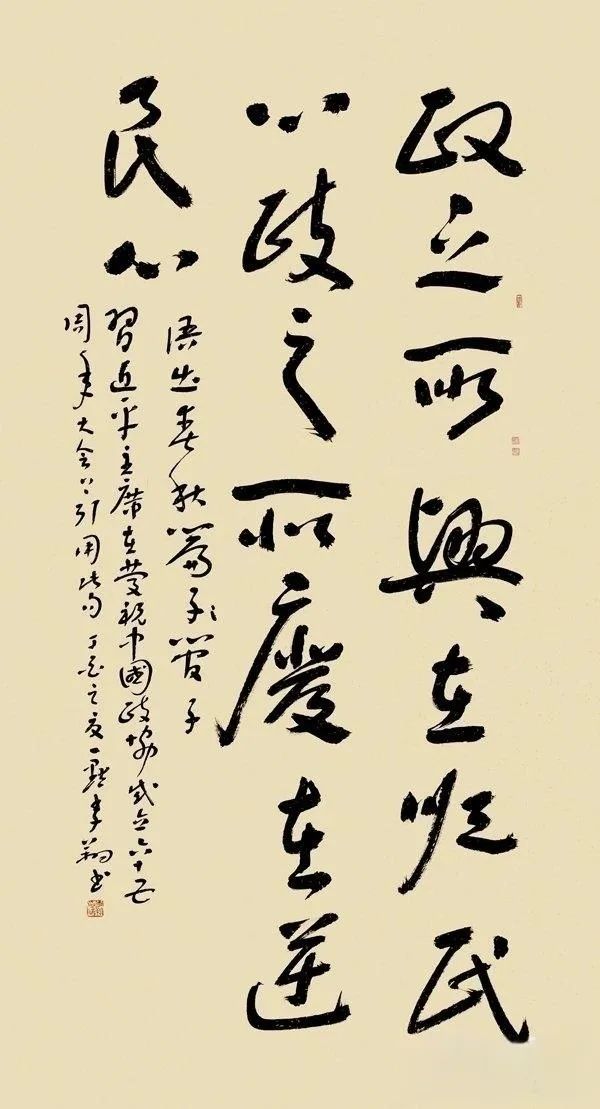 政之所興在順民
心政之所廢在逆
民心
語出春秋管子
習近平主席在慶祝中國政協成立六十五
周年大會上引用此句丁酉之夏李翔書